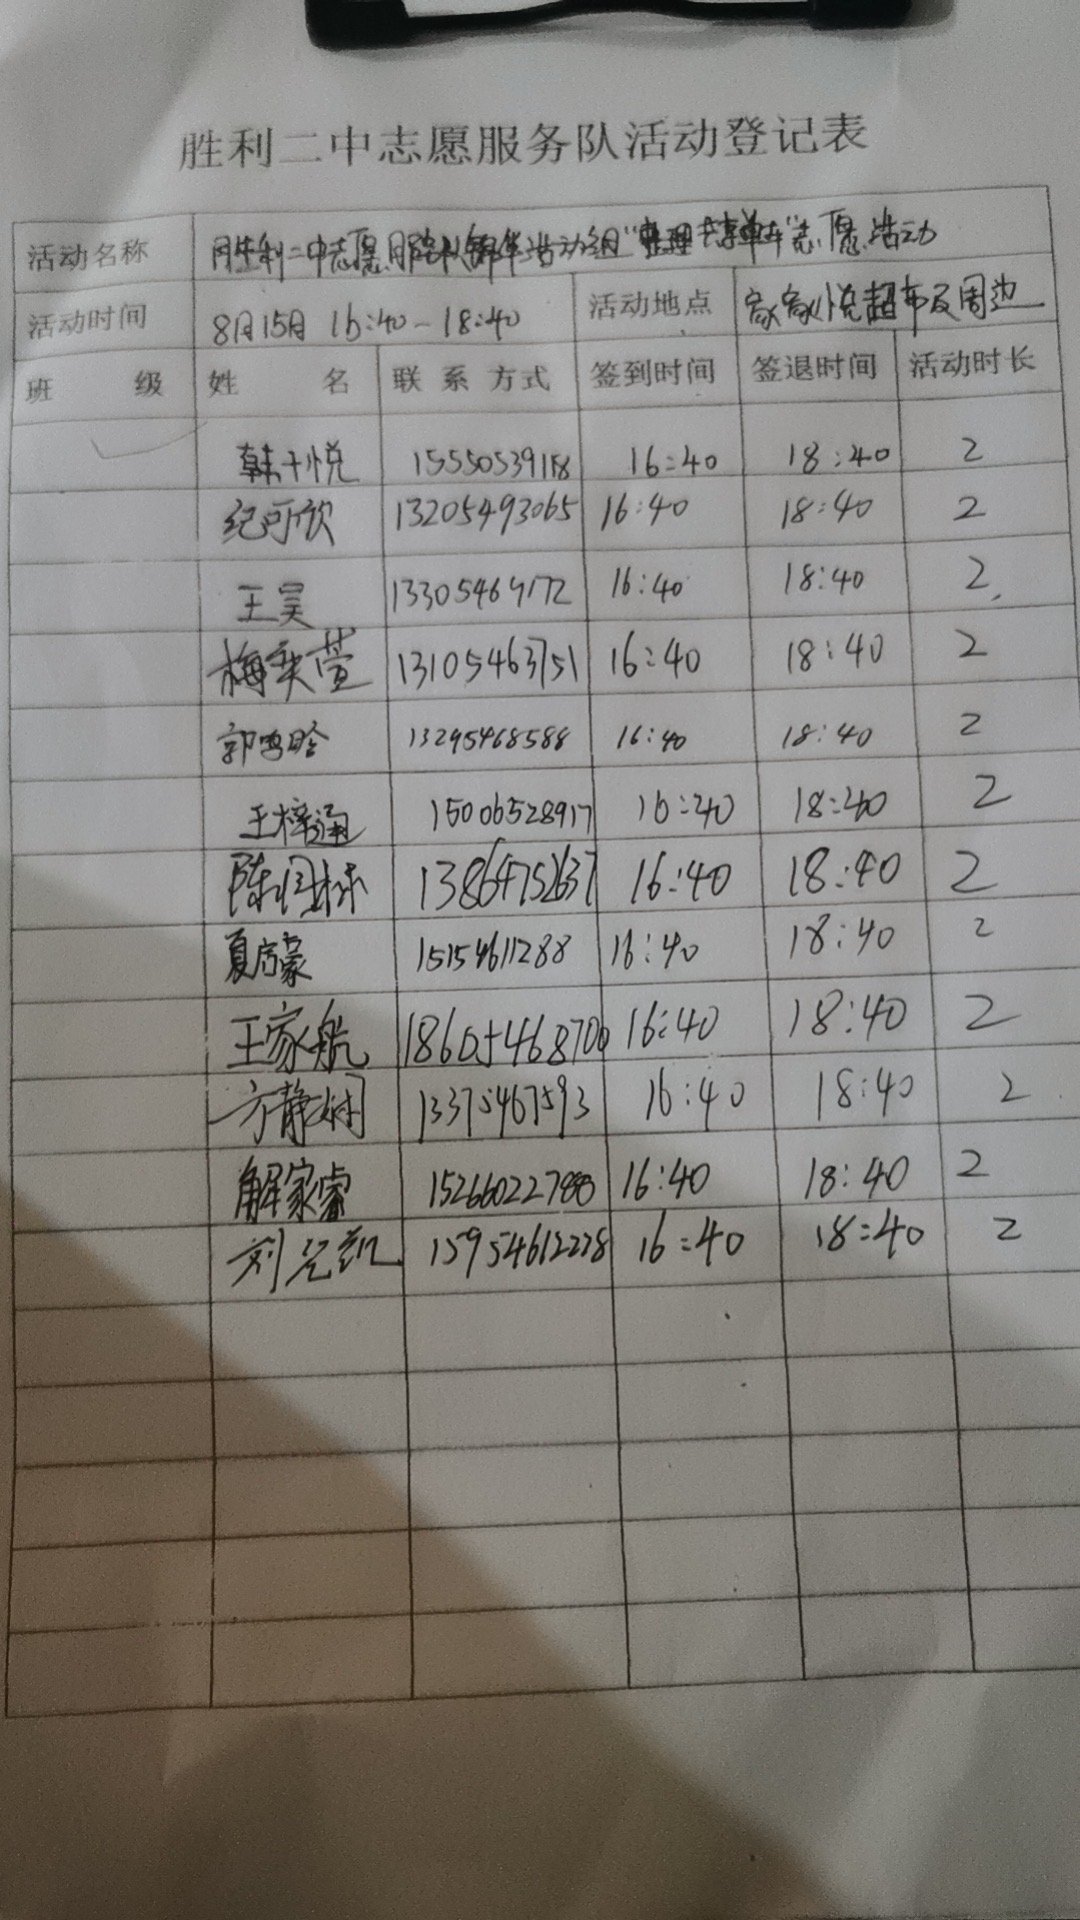 胜利二中志愿服务队活动登记表
活动名称 胜利二中志愿服务队 活动组"整理共享单车"志愿活动
活动时间 8月15日 16:40-18:40 活动地点 家家悦超市及周边
班 级 姓 名 联系方式 签到时间 签退时间 活动时长
韩千悦 15550539118 16:40 18:40 2
纪可欣 13205493065 16:40 18:40 2
王昊 13305469172 16:40 18:40 2
梅奕萱 13105463751 16:40 18:40 2
郭鸣晗 13295468588 16:40 18:40 2
王梓涵 15006528917 16:40 18:40 2
陈 林 13864752637 16:40 18:40 2
夏启豪 15154611288 16:40 18:40 2
王家航 18605468700 16:40 18:40 2
方静娴 13375467593 16:40 18:40 2
解家睿 15266022788 16:40 18:40 2
刘 凯 15954612228 16:40 18:40 2